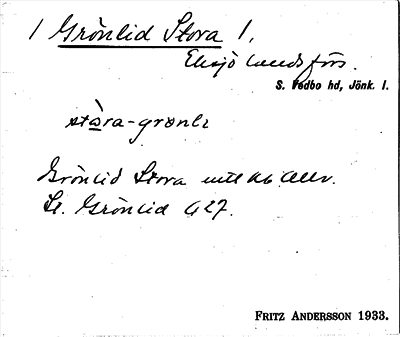 1 Grönlid Stora 1,
Eksjö landsförs.
S. Vedbo hd, Jönk. l.
stòra-grønlı
Grönlid Stora
St. Grönlid G 27.
FRITZ ANDERSSON 1933.